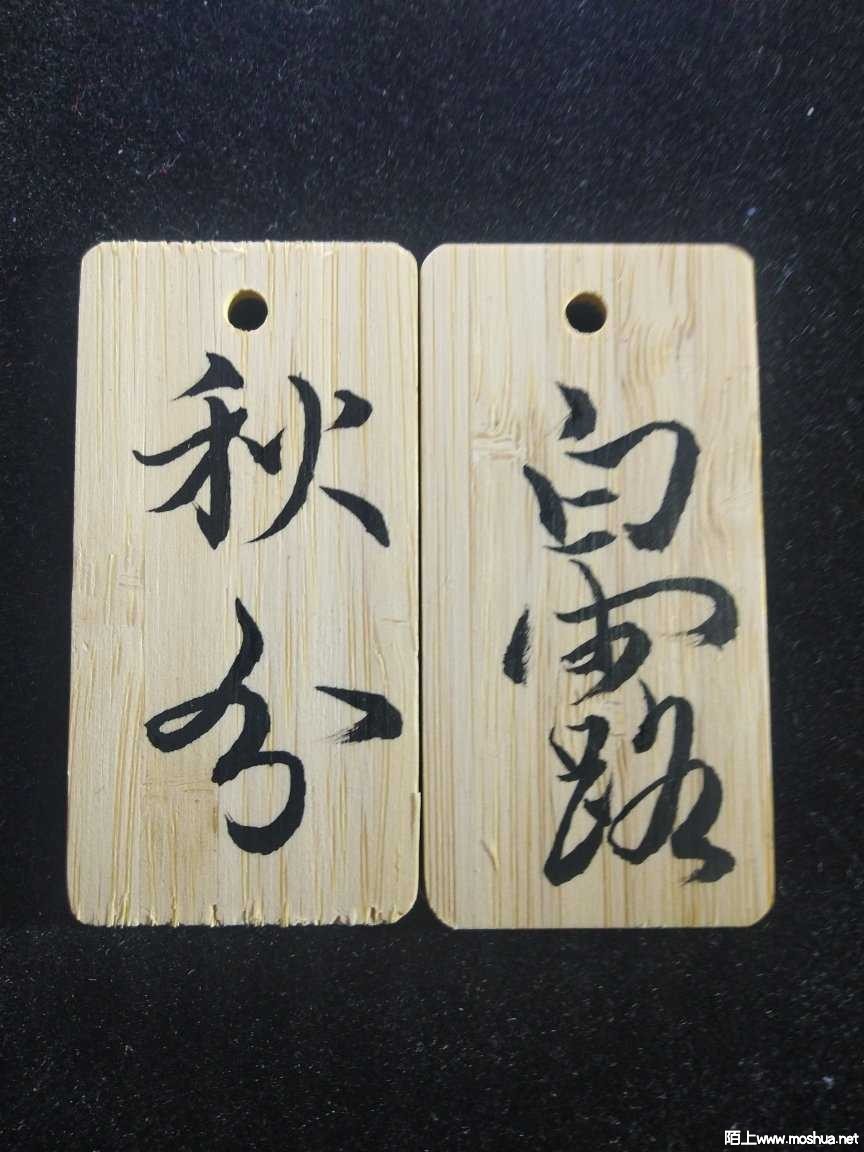 秋分
白露
陌上www.moshua.net